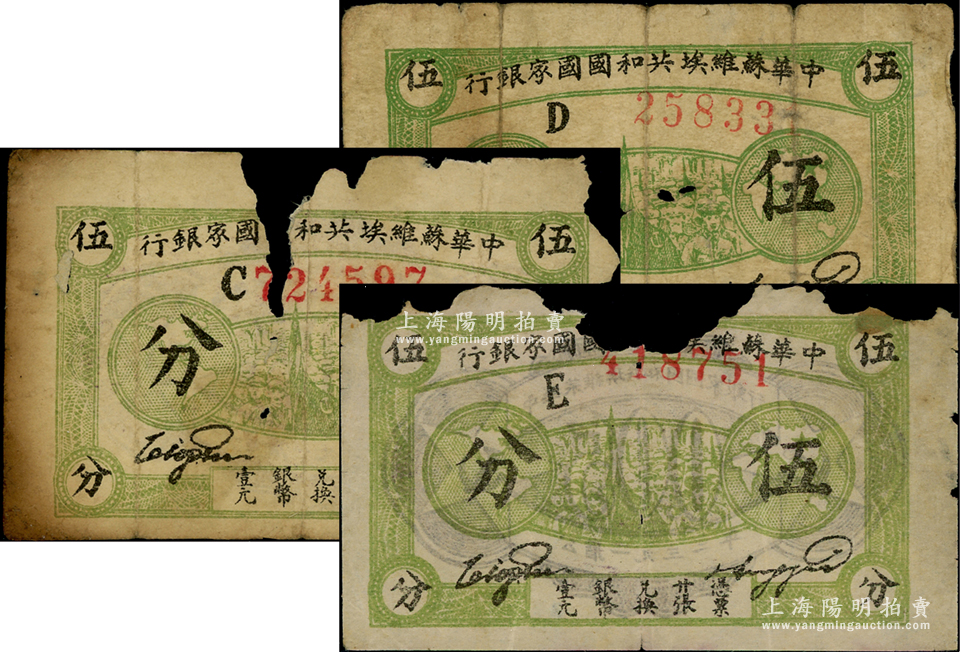 伍 伍
中華蘇維埃共和國國家銀行
D 25833
伍
伍 伍
中華蘇維埃共和國家銀行
C724597
分
分
兌換銀幣壹元
伍 伍
中華蘇維國國家銀行
E 418751
伍分
分 分
憑票廿張兌換銀幣壹元
上海陽明拍賣
www.yangmingauction.com
上海陽明拍賣
www.yangmingauction.com